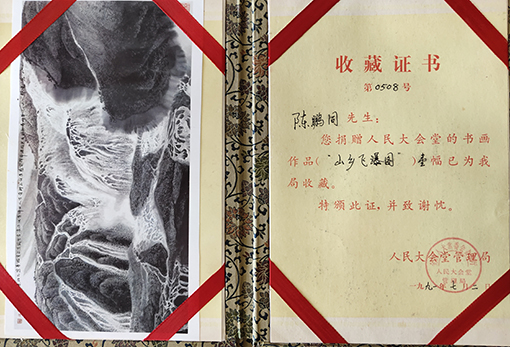 收藏证书
第0508号
陈鹏同 先生：
您捐赠人民大会堂的书画
作品（“山乡飞瀑图”）壹幅已为我
局收藏。
特颁此证，并致谢忱。
人民大会堂管理局
人民大会堂
管理局
一九九一年七月二日